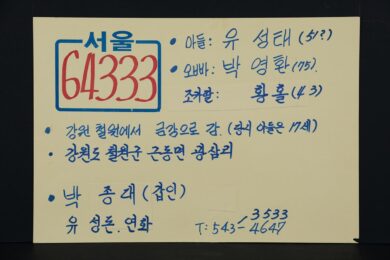 서울
64333
• 아들: 유 성태 (51?)
• 오빠: 박 영환 (75).
조카딸: 황 홀 (43)
• 강원 철원에서 금강으로 감. (당시 아들은 17세)
• 강원도 철원군 근동면 광삼리
• 박 종대 (갑인)
유 성돈. 연화
T: 543-3533
4647